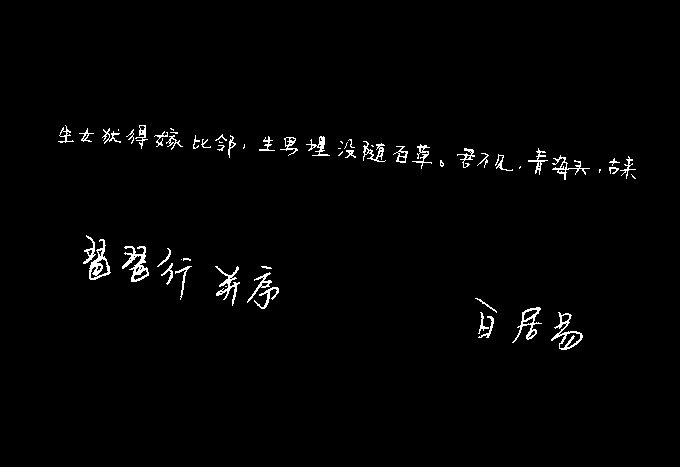 生女犹得嫁比邻,生男埋没随百草。君不见,青海头,古来
琵琶行 并序
白居易